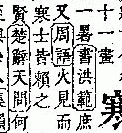 十一畫
寒
一暑書洪範庶
又周語火見而
寒士皆賴之
賢楚辭天問何